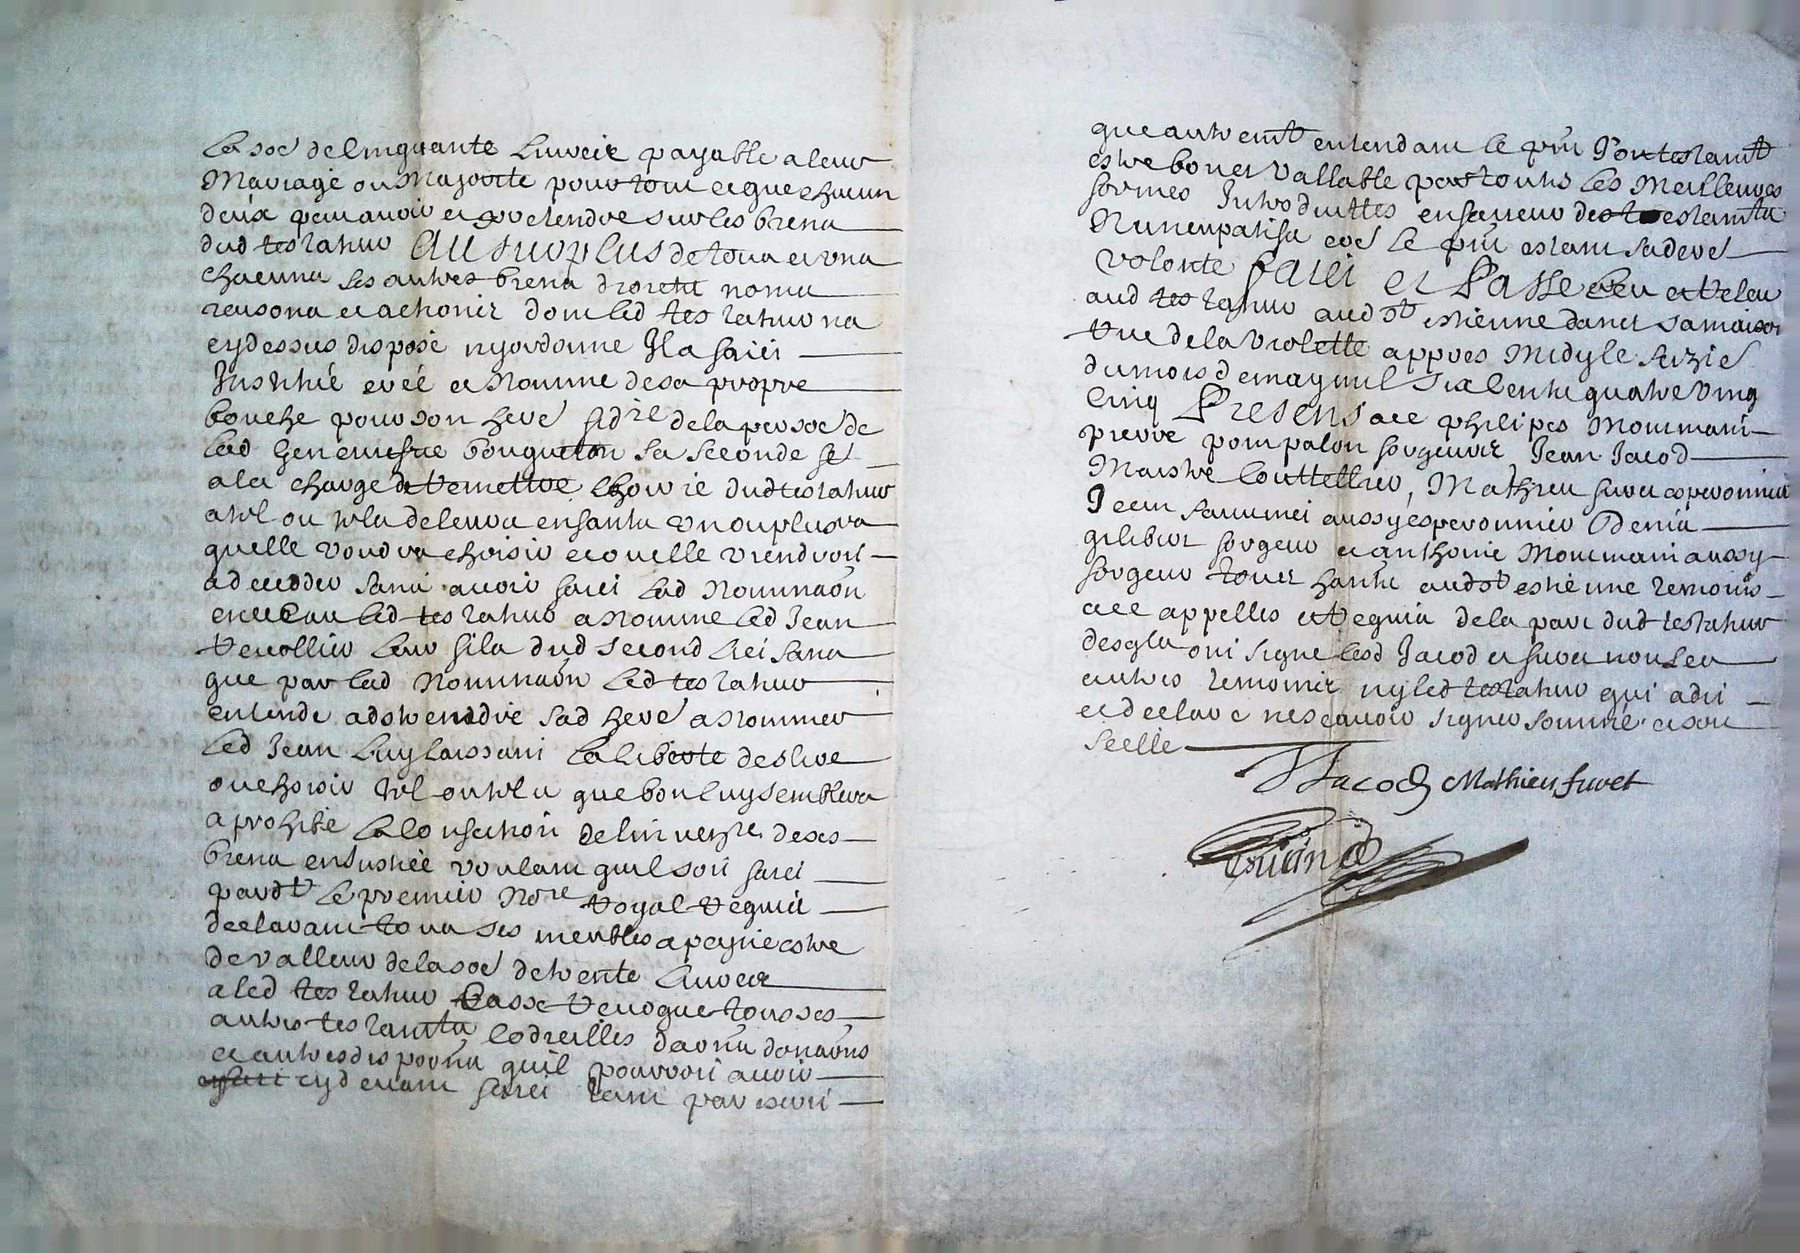 La soe de Cinquante Livres payable a leur
Mariage ou Majorite pour tout ce que chacun
deux peut avoir et pretendre sur les biens
dud testateur Au surplus de tous et uns
chacuns ses autres biens droicts noms
raisons et actions dont led testateur na
cy dessus dispose ny ordonne Il a faict
Institué creé et Nomme de sa propre
bouche pour son here de la persoe de
lad bouqueton sa seconde fe
a la charge de remettre dud testateur
a tel ou tels de leurs enfants un ou plusrs
quelle voudra choisir et ou elle viendroit
a decedder sans avoir faict lad Nominaon
en ce Cas led testateur a Nomme led Jean
leur fils dud second lict sans
que par lad Nominaon led testateur
entende adstreindre sad here a nommer
led Jean Luy laissant la liberte deslire
ou choisir tel ou tels que bon luy semblera
a prohibé la confection de Linventre de ses
biens en Justice voulant quil soit faict
pardt le premier Nore royal requis
declarant tous ses meubles a peyne estre
de valleur de la soe de trente Livres
a led testateur Casse revoque tous ses
autres testamts Codicilles daons donaons
et autres dispoons quil pourroit avoir
cy devant faict tant par escrit
que autremt entendant le pnt son testamt
estre bon et vallable par toutes les Meilleures
formes Introduittes en faveur des testamts
Nuncupatifs coe le pnt estant sa dere
volonte Faict et Passé leu et releu
aud testateur aud St estienne dans sa maison
rue de la violette appres Midy le
du mois de may mil Six Cents quatre Vingt
Cinq Presens a ce philipes Mourmant
pierre pompalon forgeurs Jean Jacod
Maistre Couttellier, Mathieu furet esperonnier
Jean aussy esperonnier Denis
gilibert forgeur et anthoine Mourmant aussy
forgeur tous hants aud St estienne temoins
a ce appelles et requis de la part dud testateur
desqls ont signe lesd Jacod et furet non les
autres temoins ny led testateur qui a dit
et declare ne scavoir signer somme et soit
scelle
Jacod Mathieu furet